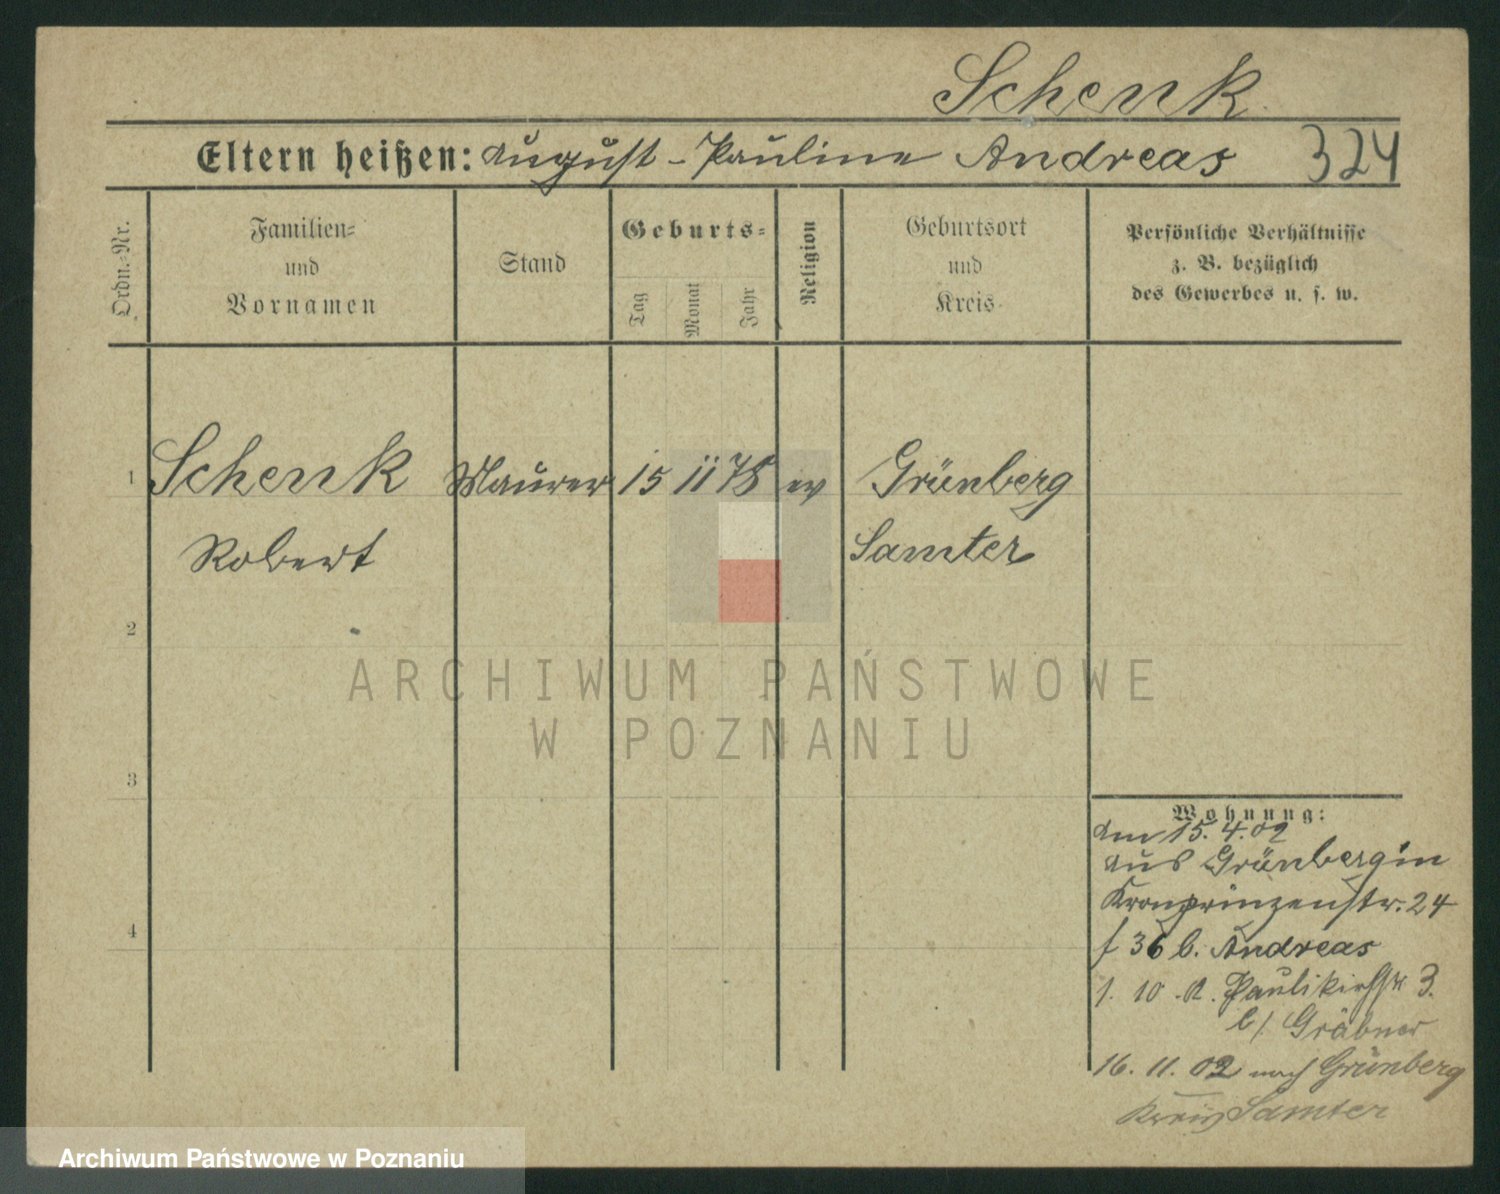 Schenk
Eltern heißen: August - Pauline Andreas 324
Ordn.-Nr.
Familien-
und
Vornamen
Stand
Geburts-
Tag
Monat
Jahr
Religion
Geburtsort
und
Kreis
Persönliche Verhältnisse
z. B. bezüglich
des Gewerbes u. s. w.
1 Schenk Maurer 15 11 78 ev Grünberg
Robert Samter
2
3
4
Wohnung:
am 15. 4. 02
aus Grünberg in
Kronprinzenstr. 24
f 36 b. Andreas
1. 10. 02. Paulikirchstr 3.
b/ Gräbner
16. 11. 02 nach Grünberg
Kreis Samter
ARCHIWUM PAŃSTWOWE
W POZNANIU
Archiwum Państwowe w Poznaniu